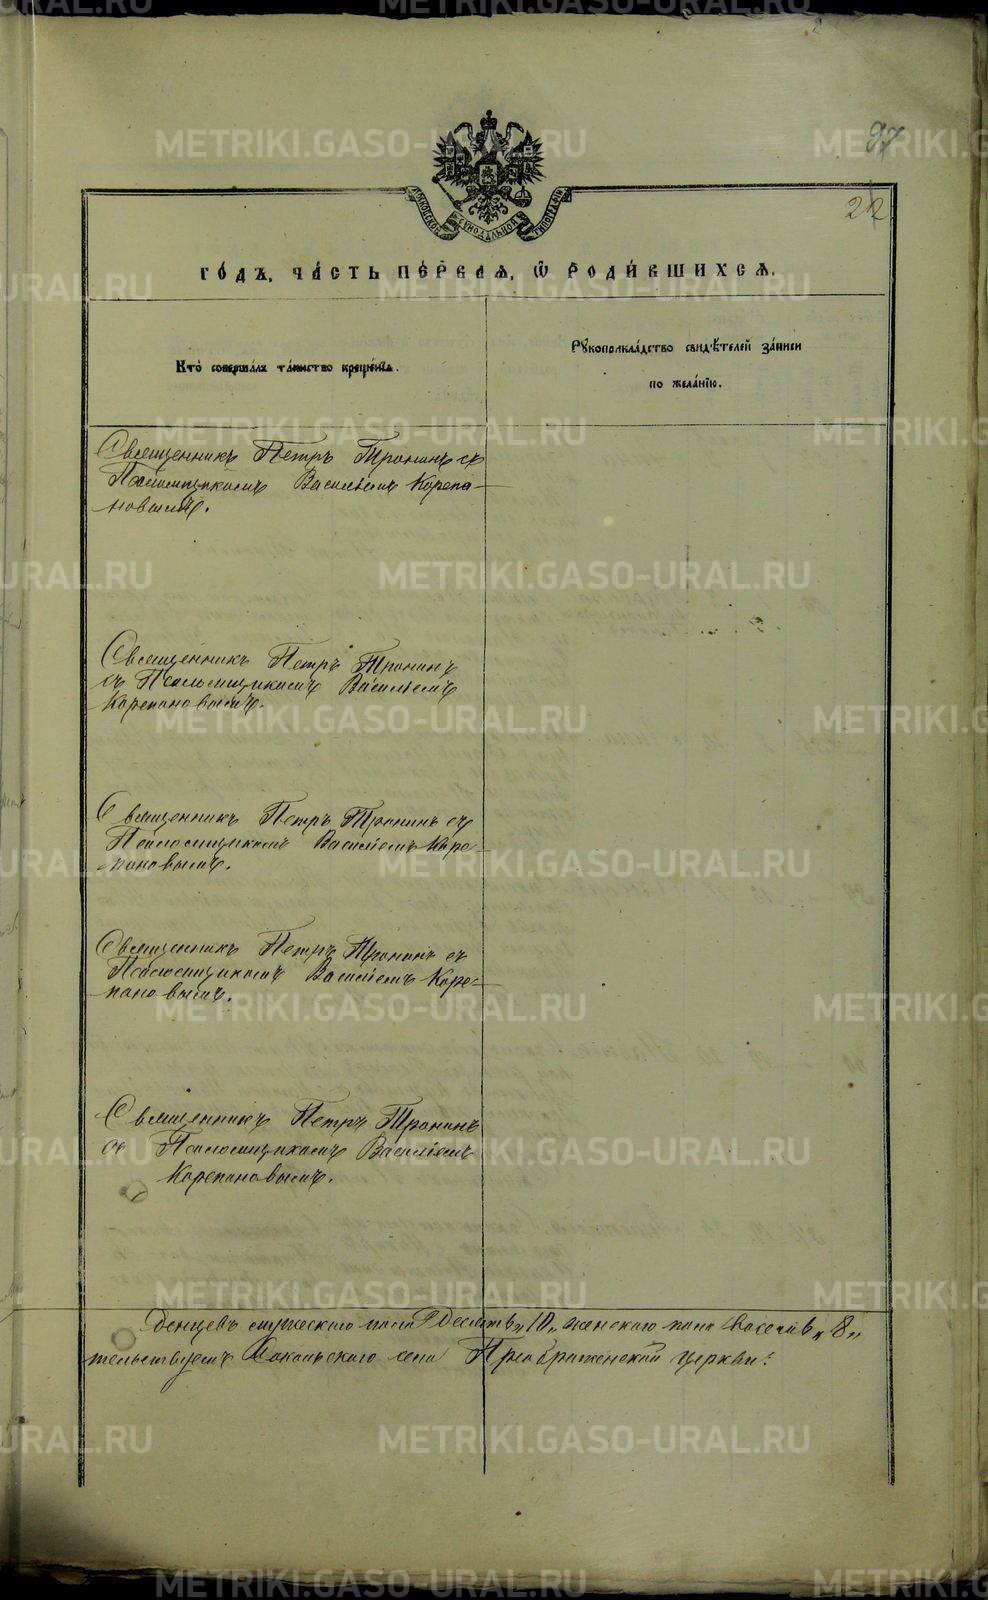 97
22
МОСКОВСКОЙ СѴНОДАЛЬНОЙ ТИПОГРАФІИ
ГОДЪ, ЧАСТЬ ПЕРВАЯ, Ѡ РОДИВШИХСЯ.
Кто совершалъ таинство крещенія.
Рукоприкладство свидѣтелей записи
по желанію.
Священникъ Петръ Тронинъ съ
Псаломщикомъ Василіемъ Корепа-
новымъ.
Священникъ Петръ Тронинъ
съ Псаломщикомъ Василіемъ
Корепановымъ.
Священникъ Петръ Тронинъ съ
Псаломщикомъ Василіемъ Коре-
пановымъ.
Священникъ Петръ Тронинъ съ
Псаломщикомъ Василіемъ Коре-
пановымъ.
Священникъ Петръ Тронинъ
съ Псаломщикомъ Василіемъ
Корепановымъ.
денцевъ мужескаго пола десять „10„ женскаго пола восемь „8„
тельствуемъ села Преображенской церкви:
METRIKI.GASO-URAL.RU